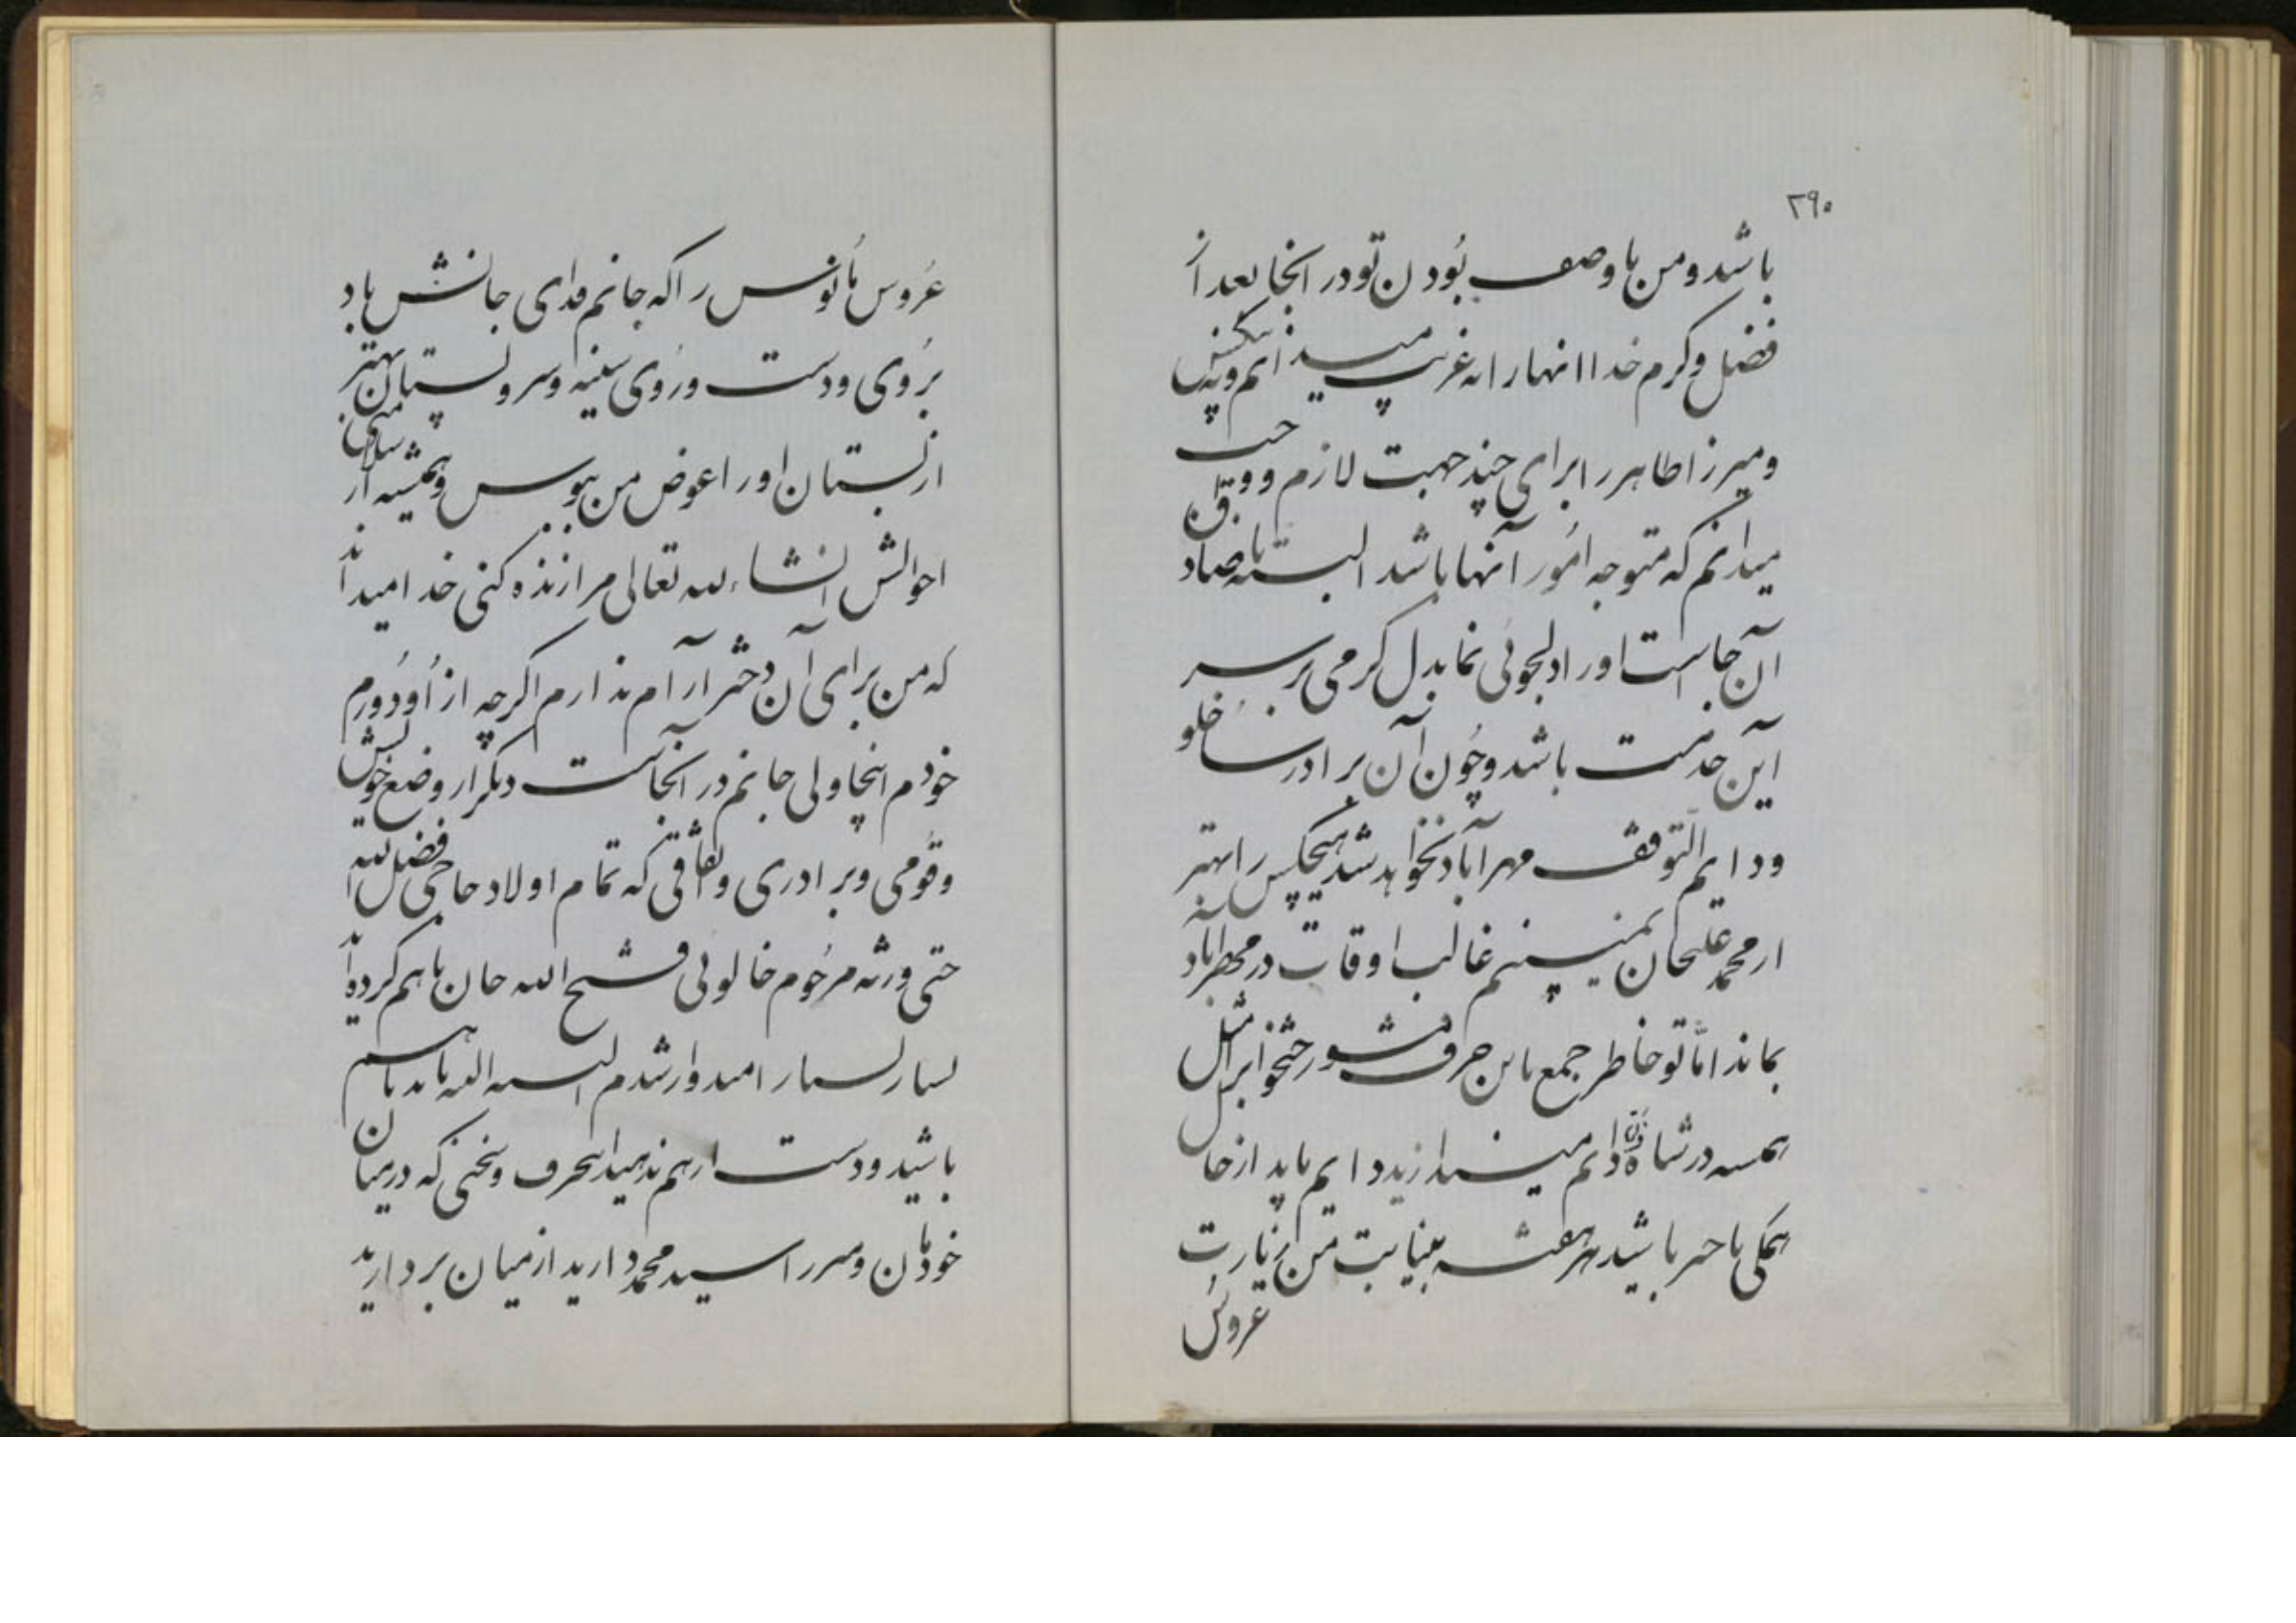 ۲۹۰
باشد و من با وصف بودن تو در انجا بعد از
فضل و کرم خدا انها را نه غریب میدانم و نه بیکس
و میرزا طاهر را برای چند جهت لازم و واجب
میدانم که متوجه امور آنها باشد البته با صاد
آن جاست او را دلجوئی نما بدل کرمی بر سر
این خدمت باشد و چون آن برادر
و دایم التوقف مهرآباد نخواهد شد هیچکس را بهتر
از محمد علیخان نمیبینم غالب اوقات در مهرآباد
بماند امّا تو خاطر جمع باین حرف مشو
همیشه در شما دایم باید از حال
همکی با خبر باشید هر هفته بنیابت من زیارت
عروس
عروس مأنوس را که جانم فدای جانش باد
بروی و دست و روی سینه و سر و پستان بهتر
از بستان او را عوض من ببوس و همیشه از سلامتی
احوالش انشاءالله تعالی مرا زنده کنی خدا میداند
که من برای آن دختر آرام ندارم اکرچه از او دورم
خودم اینجا ولی جانم در آنجاست دیگر از وضع خویشی
و قومی و برادری و نفاقی که تمام اولاد حاجی فضل الله
حتی ورثه مرحوم خالوئی فتح الله خان با هم کرده‌اند
بسیار بسیار امیدوار شدم البته البته باید با هم
باشید و دست از هم ندهید این حرف و سخنی که در میان
خودتان و میرزا سید محمد دارید از میان بردارید